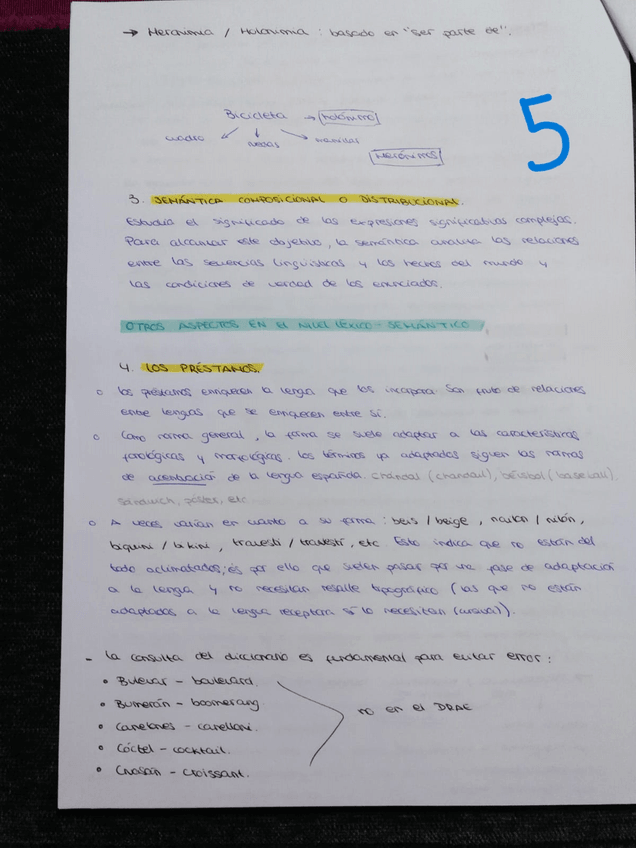 → Meronimia / Holonimia : basado en "ser parte de".
5
Bicicleta → holónimo
cuadro ruedas manillar
Merónimos
3. SEMÁNTICA COMPOSICIONAL O DISTRIBUCIONAL.
Estudia el significado de las expresiones significativas complejas.
Para alcanzar este objetivo, la semántica analiza las relaciones
entre las secuencias lingüísticas y los hechos del mundo y
las condiciones de verdad de los enunciados.
OTROS ASPECTOS EN EL NIVEL LÉXICO-SEMÁNTICO
4. LOS PRÉSTAMOS.
○ Los préstamos enriquecen la lengua que los incorpora. Son fruto de relaciones
entre lenguas que se enriquecen entre sí.
○ Como norma general, la forma se suele adaptar a las características
fonológicas y morfológicas. Los términos ya adaptados siguen las normas
de acentuación de la lengua española. chándal (chandail), béisbol (baseball).
sándwich, póster, etc.
○ A veces varían en cuanto a su forma : beis / beige, nailon / nilón,
biquini / bikini, travesti / travestí, etc. Esto indica que no están del
todo aclimatados; es por ello que suelen pasar por una fase de adaptación
a la lengua y no necesitan resalte tipográfico (las que no están
adaptados a la lengua receptora sí lo necesitan (cursiva)).
- La consulta del diccionario es fundamental para evitar error :
• Bulevar - boulevard.
• Bumerán - boomerang.
• Canelones - canelloni.
• Cóctel - cocktail.
• Cruasán - croissant.
no en el DRAE